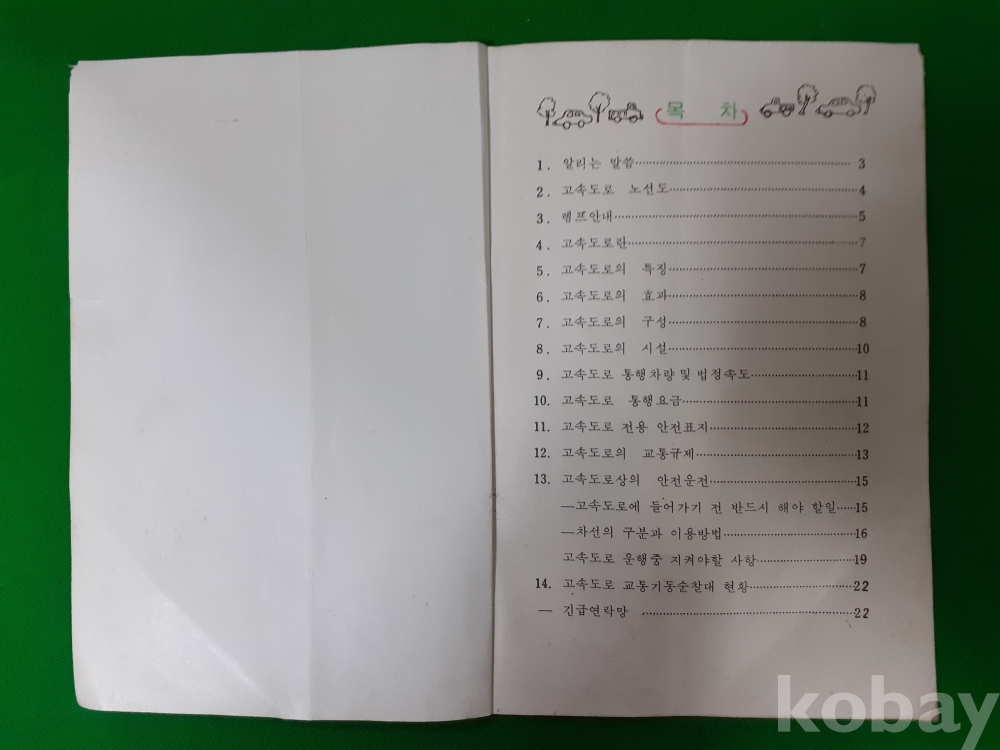 목 차
1. 알리는 말씀 3
2. 고속도로 노선도 4
3. 램프안내 5
4. 고속도로란 7
5. 고속도로의 특징 7
6. 고속도로의 효과 8
7. 고속도로의 구성 8
8. 고속도로의 시설 10
9. 고속도로 통행차량 및 법정속도 11
10. 고속도로 통행요금 11
11. 고속도로 전용 안전표지 12
12. 고속도로의 교통규제 13
13. 고속도로상의 안전운전 15
—고속도로에 들어가기 전 반드시 해야 할일 15
—차선의 구분과 이용방법 16
고속도로 운행중 지켜야할 사항 19
14. 고속도로 교통기동순찰대 현황 22
— 긴급연락망 22
kobay